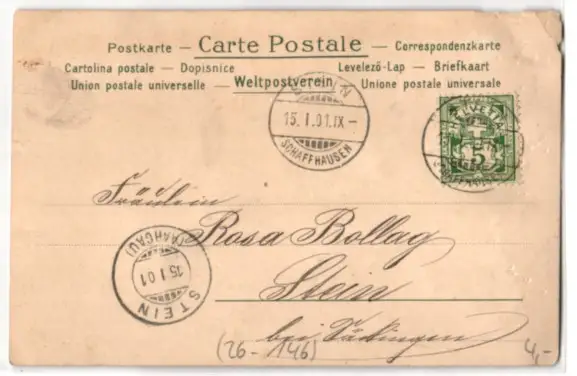 Postkarte — Carte Postale — Correspondenzkarte
Cartolina postale — Dopisnice Levelező-Lap — Briefkaart
Union postale universelle — Weltpostverein — Union postale universale
15. I. 01. IX —
SCHAFFHAUSEN
HELVETIA
5
Fräulein
Rosa Bollag
Stein
bei Säckingen
STEIN
15. I. 01
(AARGAU)
(26 - 146)
4,-